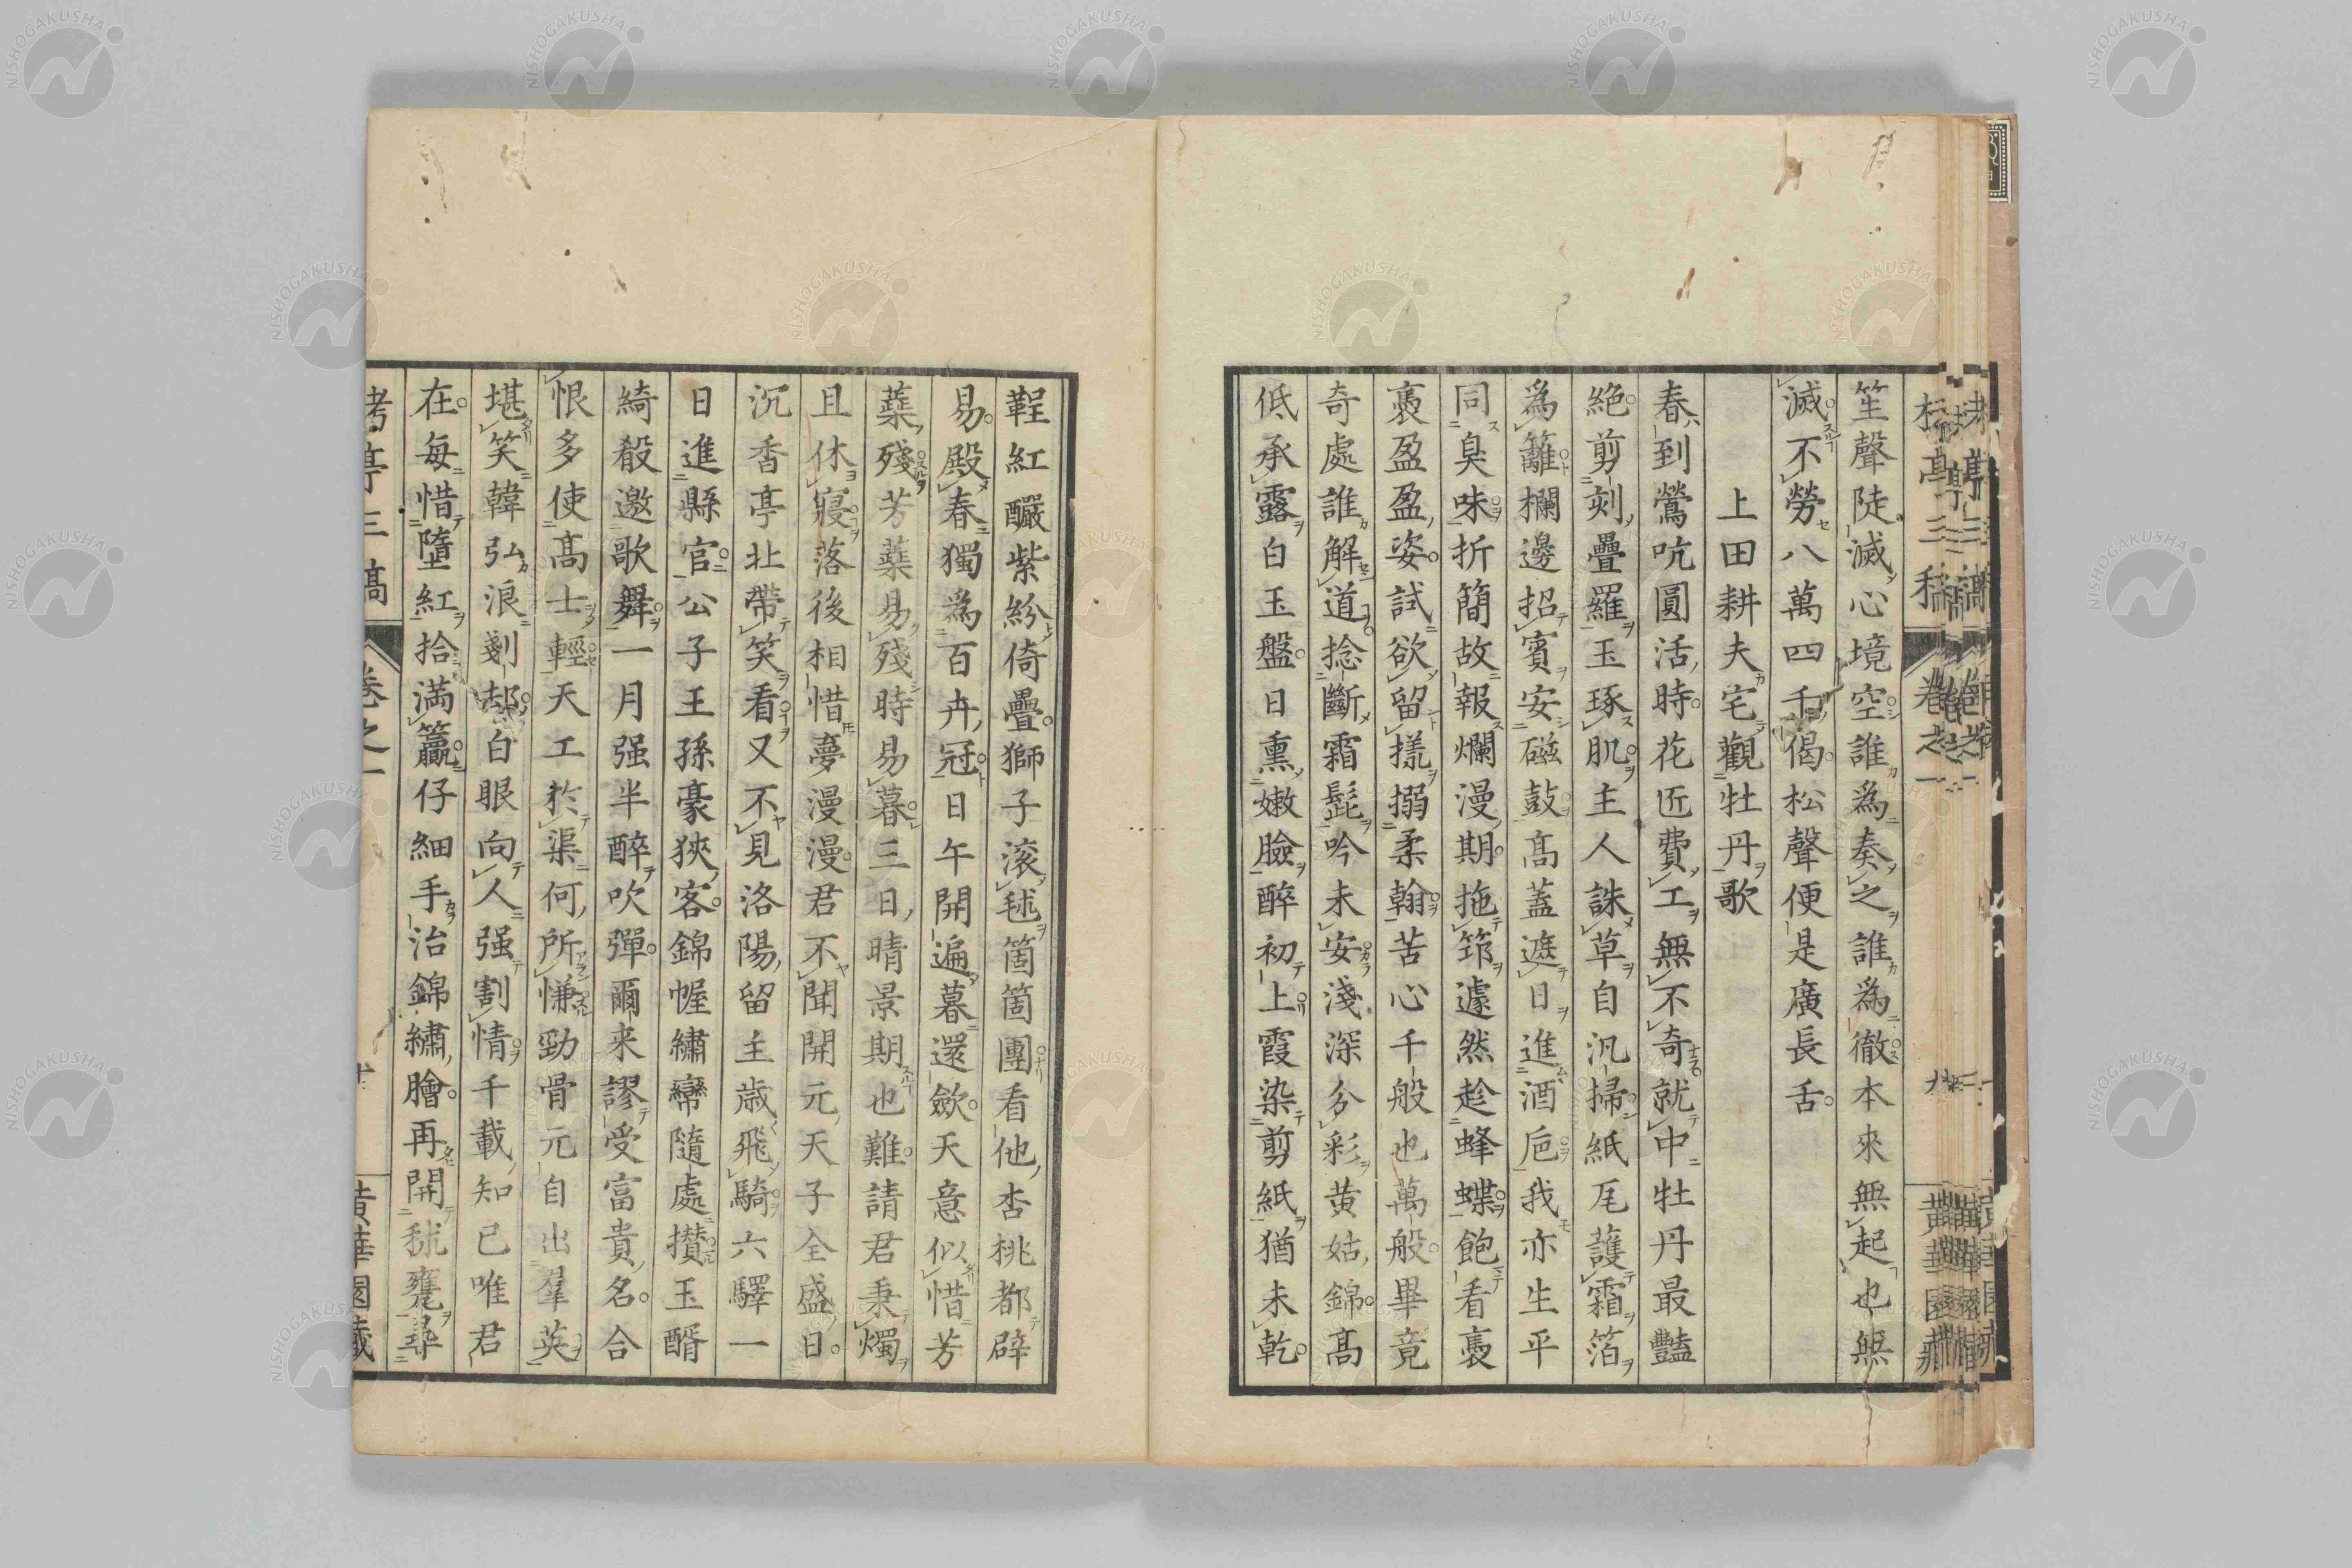 笙聲陡滅心境空誰爲奏之誰爲徹本來無起也無
滅不勞八萬四千偈松聲便是廣長舌
上田耕夫宅觀牡丹歌
春到鶯吭圓活時花匠費工無不奇就中牡丹最豔
絕剪刻疊羅玉琢肌主人誅草自汛掃紙尾護霜箔
爲籬欄邊招賓安磁鼓高蓋遮日進酒巵我亦生平
同臭味折簡故報爛漫期拖筇遽然趁蜂蝶飽看裛
裛盈盈姿試欲留㨾搦柔翰苦心千般也萬般畢竟
奇處誰解道捻斷霜髭吟未安淺深分彩黃姑錦高
低承露白玉盤日熏嫩臉醉初上霞染剪紙猶未乾
鞓紅釅紫紛倚疊獅子滚毬箇箇團看他杏桃都辟
易殿春獨爲百卉冠日午開遍暮還歛天意似惜芳
蘂殘芳蘂易殘時易暮三日晴景期也難請君秉燭
且休寢落後相惜夢漫漫君不聞開元天子全盛日
沉香亭北帶笑看又不見洛陽留主歲飛騎六驛一
日進縣官公子王孫豪狹客錦幄繡幕隨處攅玉醑
綺殽邀歌舞一月强半醉吹彈爾来謬受富貴名合
恨多使高士輕天工於渠何所慊勁骨元自出羣英
堪笑韓弘浪剗却白眼向人强割情千載知已唯君
在每惜墮紅拾満籯仔細手治錦繡膾再開秫甕尋
栲亭三稿 卷之一 黃華園藏